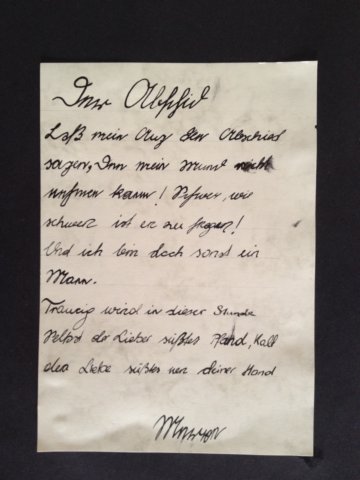 Der Abschid
Laß mein Aug den Abschied
sagen, Den mein Mund nicht
nehmen kann! Schwer, wie
schwer ist er zu tragen!
Und ich bin doch sonst ein
Mann.
Traurig wird in dieser Stunde
Selbst der Liebe süßtes Pfand, Kalt
der Liebe